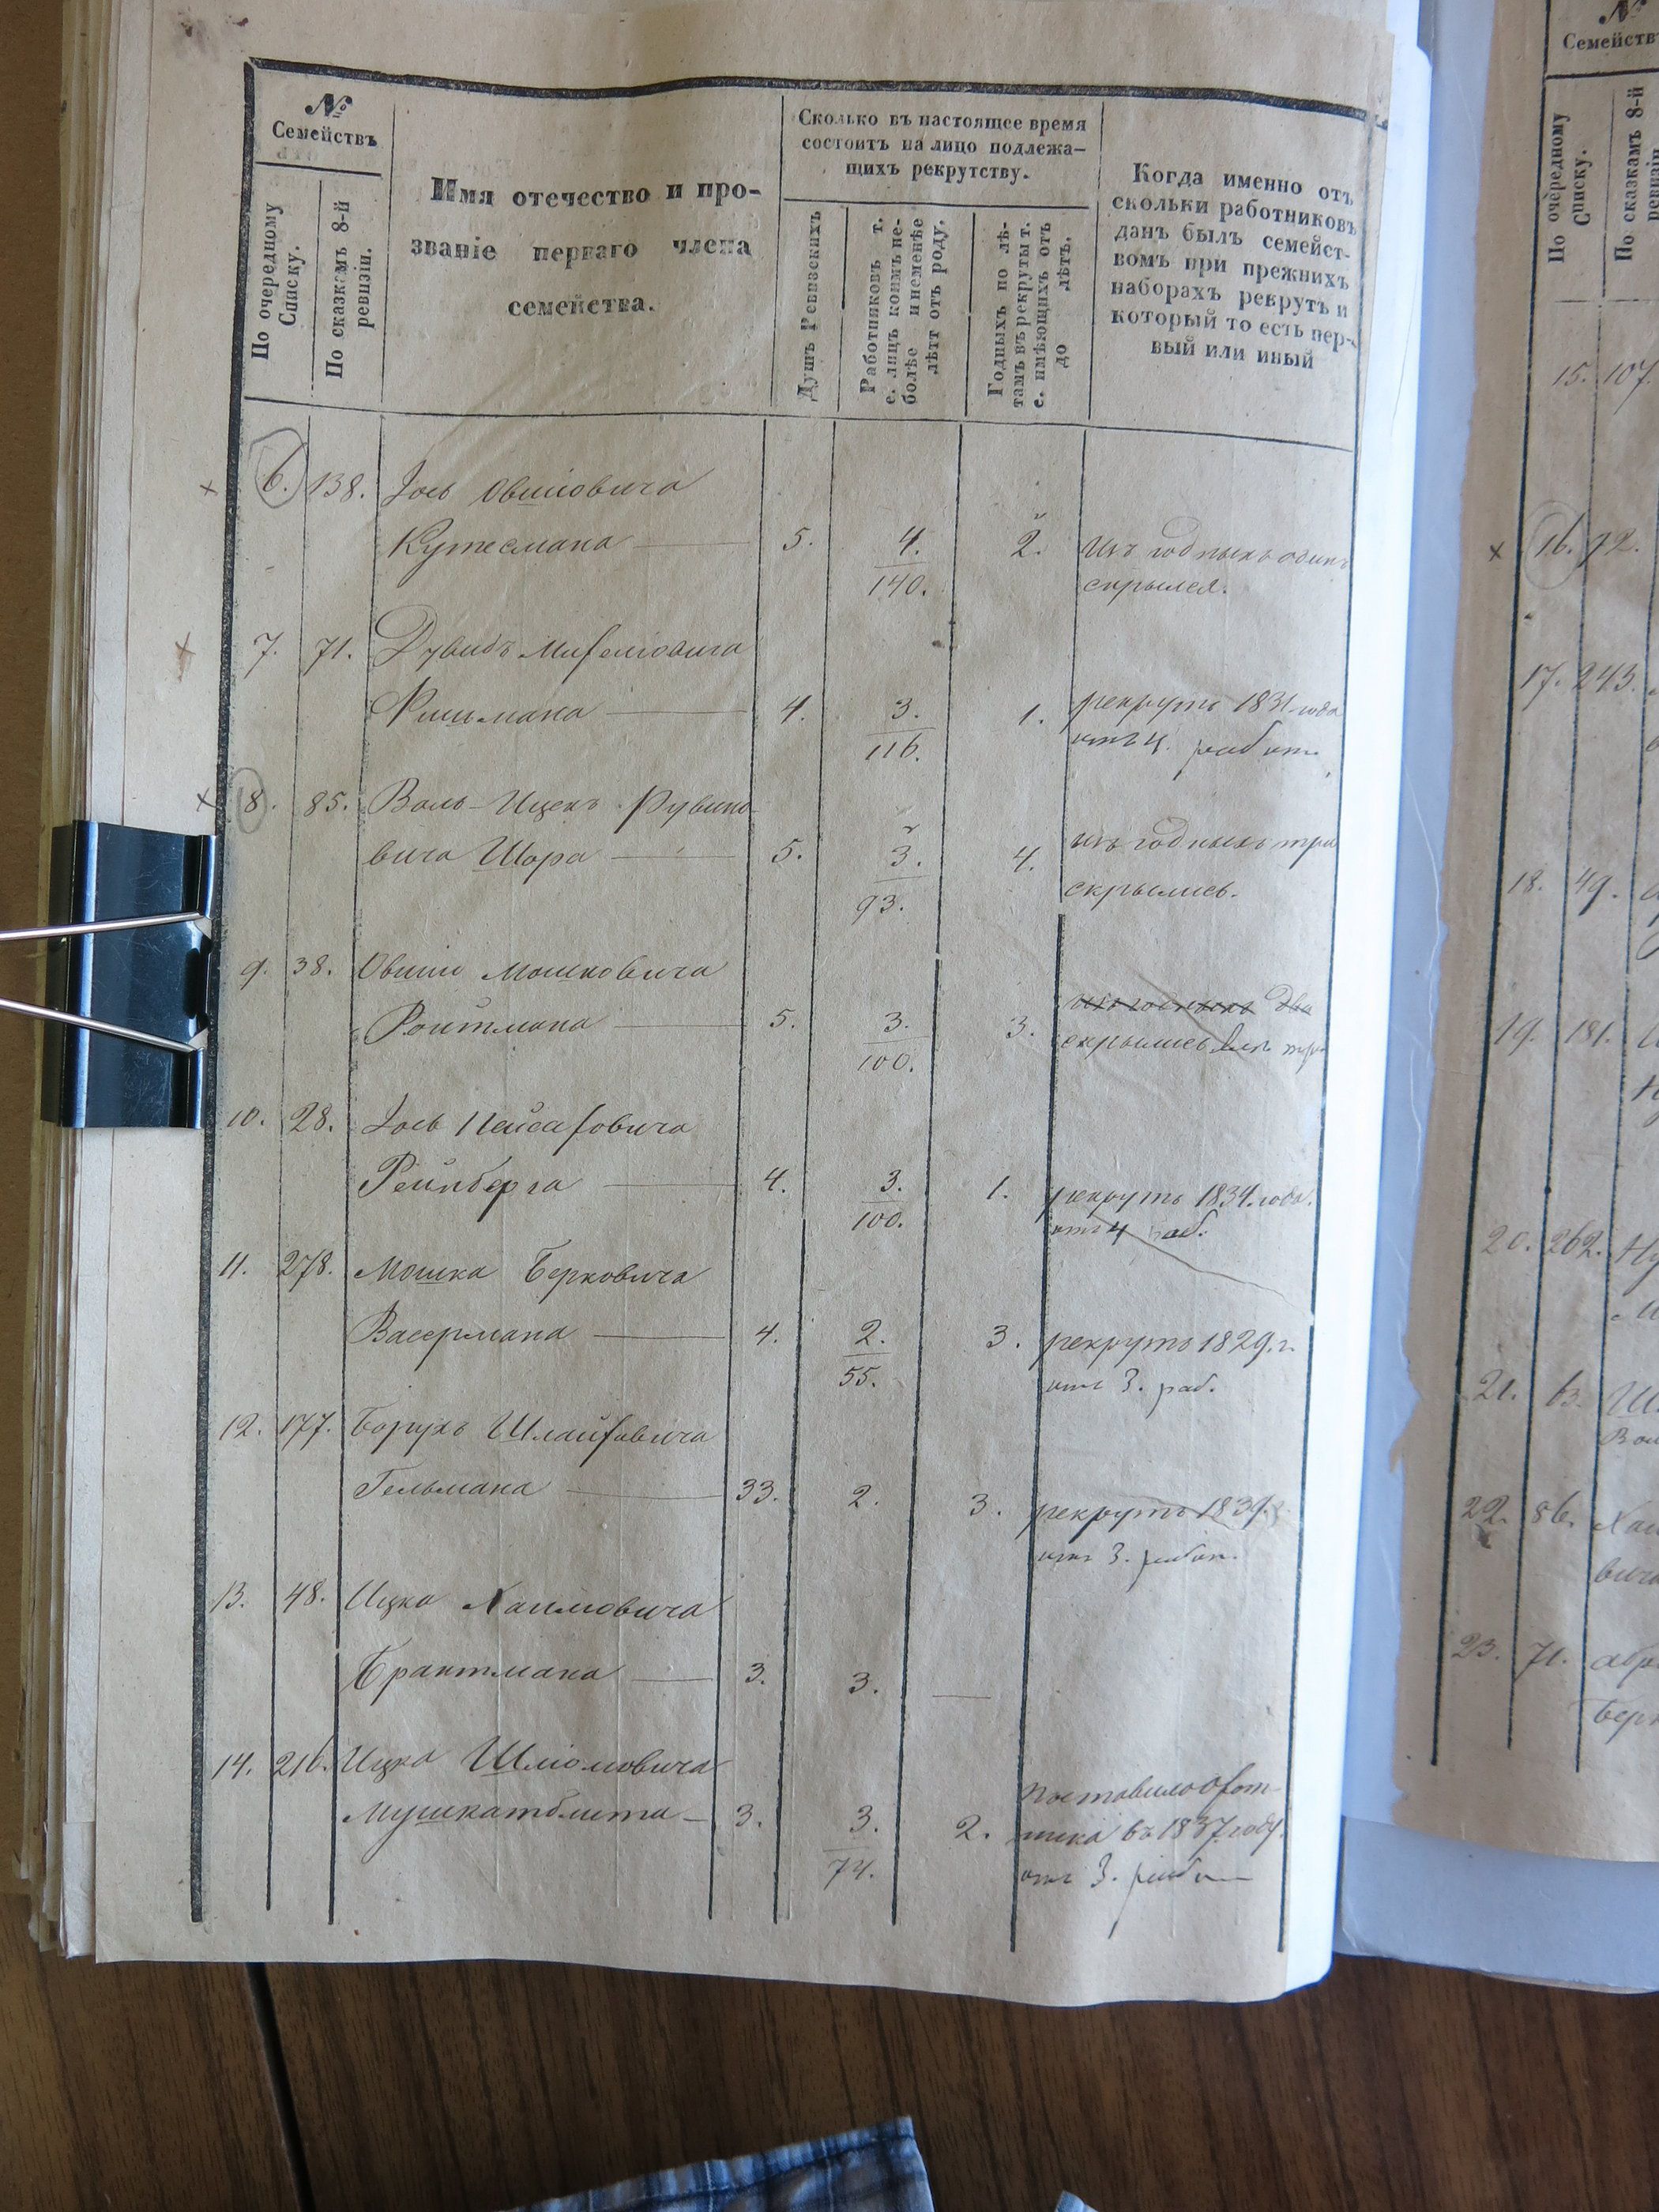 №
Семействъ
По очередному Списку.
По сказкамъ 8-й ревизіи.
Имя отечество и про-
званіе перваго члена
семейства.
Сколько въ настоящее время
состоитъ на лицо подлежа-
щихъ рекрутству.
Душъ Ревизскихъ
Работниковъ т.
е. лицъ коимъ не-
болѣе и неменѣе
лѣтт отъ роду.
Годныхъ по лѣ-
тамъ въ рекруты т.
е. имѣющихъ отъ
до лѣтъ.
Когда именно отъ
скольки работниковъ
данъ былъ семейст-
вомъ при прежнихъ
наборахъ рекрутъ и
который то есть пер-
вый или иный
6. 138. Іось Овшіовича
Кутесмана 5. 4. 2. Изъ годныхъ одинъ
140. скрылся.
7. 71. Дувидъ
Фишмана 4. 3. 1. рекрутъ 1831 года
116. отъ 4. работ.
8. 85. Воль-Ицекъ Рувино-
вича Шора 5. 3. 4. изъ годныхъ три
93. скрылись.
9. 38. Овшіи Мошковича
Ройтмана 5. 3. 3. изъ годныхъ два
100. скрылись
10. 28. Іось Пейсаховича
Рейнберга 4. 3. 1. рекрутъ 1834. года.
100. отъ 4 раб.
11. 278. Мошка Берковича
Васермана 4. 2. 3. рекрутъ 1829. г.
55. отъ 3. раб.
12. 177. Борухъ
Гельмана 33. 2. 3. рекрутъ 1839.
отъ 3. работ.
13. 48. Ицка Хаимовича
Брактмана 3. 3.
14. 216. Ицка Шліомовича
Мушкатблита 3. 3. 2. поставило охот-
ника въ 1837 году
74. отъ 3. работ
№
Семейств
По очередному Списку.
По сказкамъ 8-й ревизіи
15. 107.
16. 72.
17. 243.
18. 49.
19. 181.
20. 262.
21. 63.
22. 86.
вича
23. 71.